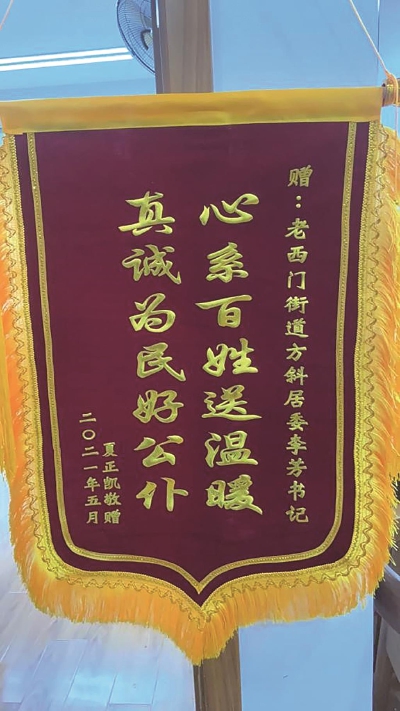 赠：老西门街道方斜居委李芳书记
心系百姓送温暖
真诚为民好公仆
夏正凯敬赠
二〇二一年五月